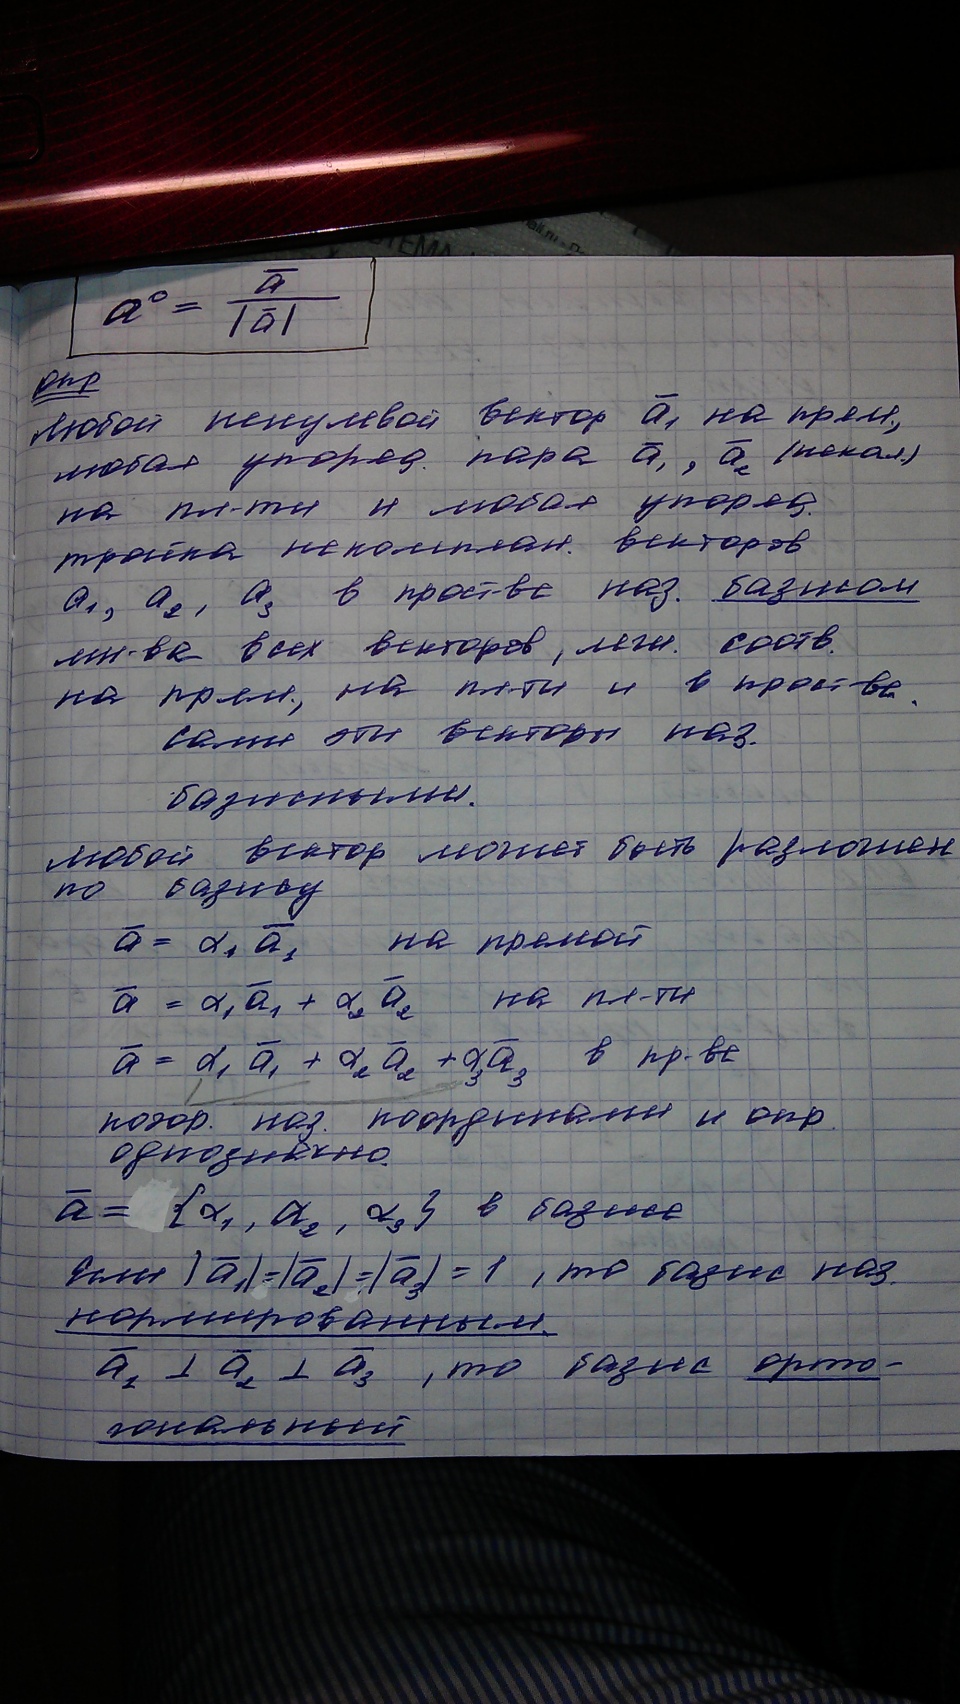 СТЕМА
a° = ā / |ā|
опр
Любой ненулевой вектор ā₁ на прям.,
любая упоряд. пара ā₁, ā₂ (некол.)
на пл-ти и любая упоряд.
тройка некомплан. векторов
a₁, a₂, a₃ в простве наз. базисом
мн-ва всех векторов, леж. соотв.
на прям., на пл-ти и в простве.
Сами эти векторы наз.
базисными.
Любой вектор может быть разложен
по базису
ā = α₁ā₁ на прямой
ā = α₁ā₁ + α₂ā₂ на пл-ти
ā = α₁ā₁ + α₂ā₂ + α₃ā₃ в пр-ве
наз. координами и опр
однозначно.
ā = {α₁, α₂, α₃} в базисе
Если |ā₁|=|ā₂|=|ā₃| = 1, то базис наз.
нормированным.
ā₁ ⊥ ā₂ ⊥ ā₃, то базис орто-
гональный